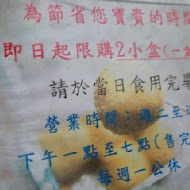 為節省您寶貴的時間
即日起限購2小盒(一
請於當日食用完畢
營業時間:週二至
下午一點至七點(售完
每週一公休